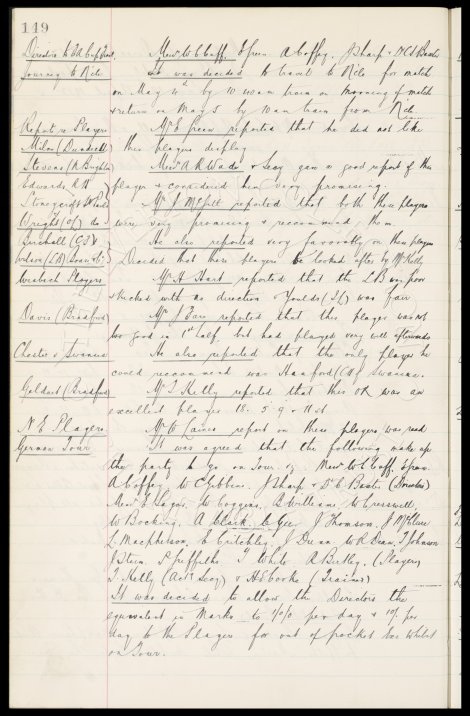 149
Directors to E.A. Cup Final Messrs W C Cuff, E Green A Coffey, J Sharp & Dr C S Baxter
Journey to Rcle it was decided to travel to Rcle for match
on May 4th by 10 train from on morning of match
& return on May 5 by 10 am train from Rcle
Reports re Players Mr E Green reported that he did not like
Milne (Dundee Utd) this players display
Stevens (R Brighton Messrs A R Wade & Secy gave a good report of this
Edwards R N player & considered him very promising.
Stonycroft W Park Mr J reported that both these players
Wright (of) do were very promising & recommend them
Birchall (CS & He also reported very favorably on these players
Decided that these players be looked after by Mr Kelly
Wisbech Players Mr H Hart reported that the L B was poor
& kicked with no direction Youlds (IL) was fair
Davis (Bradford) Mr J Fare reported that this player was not
too good in 1st half, but had played very well afterwards
Chester v Swansea He also reported that the only player he
could recommend was Hanford (CH) Swansea.
Geldart (Bradford) Mr T Kelly reported that this OR was an
excellent player 18. 5 9 & 11st
N E Players Mr W Laird report on these players was read
German Tour It was agreed that the following make up
the party to go on tour. of Messrs W C Cuff, E Green
A Coffey, W C Gibbins, J Sharp & Dr C Baxter (Directors)
Messrs E Sagar, W Coggins, B Williams W Cresswell
W Bocking, A Clark, C Gee, J Thomson, J McClure
L Macpherson, H Critchley, J Dunn W R Dean, T Johnson
J Stein, P Griffiths T White A Rigby, (Players)
T Kelly (Actg Secy) & H E Cooke (Trainer)
It was decided to allow the Directors the
equivalent in Marks to per day & 10/- per
day to the Players for out of pocket exs whilst
on Tour.